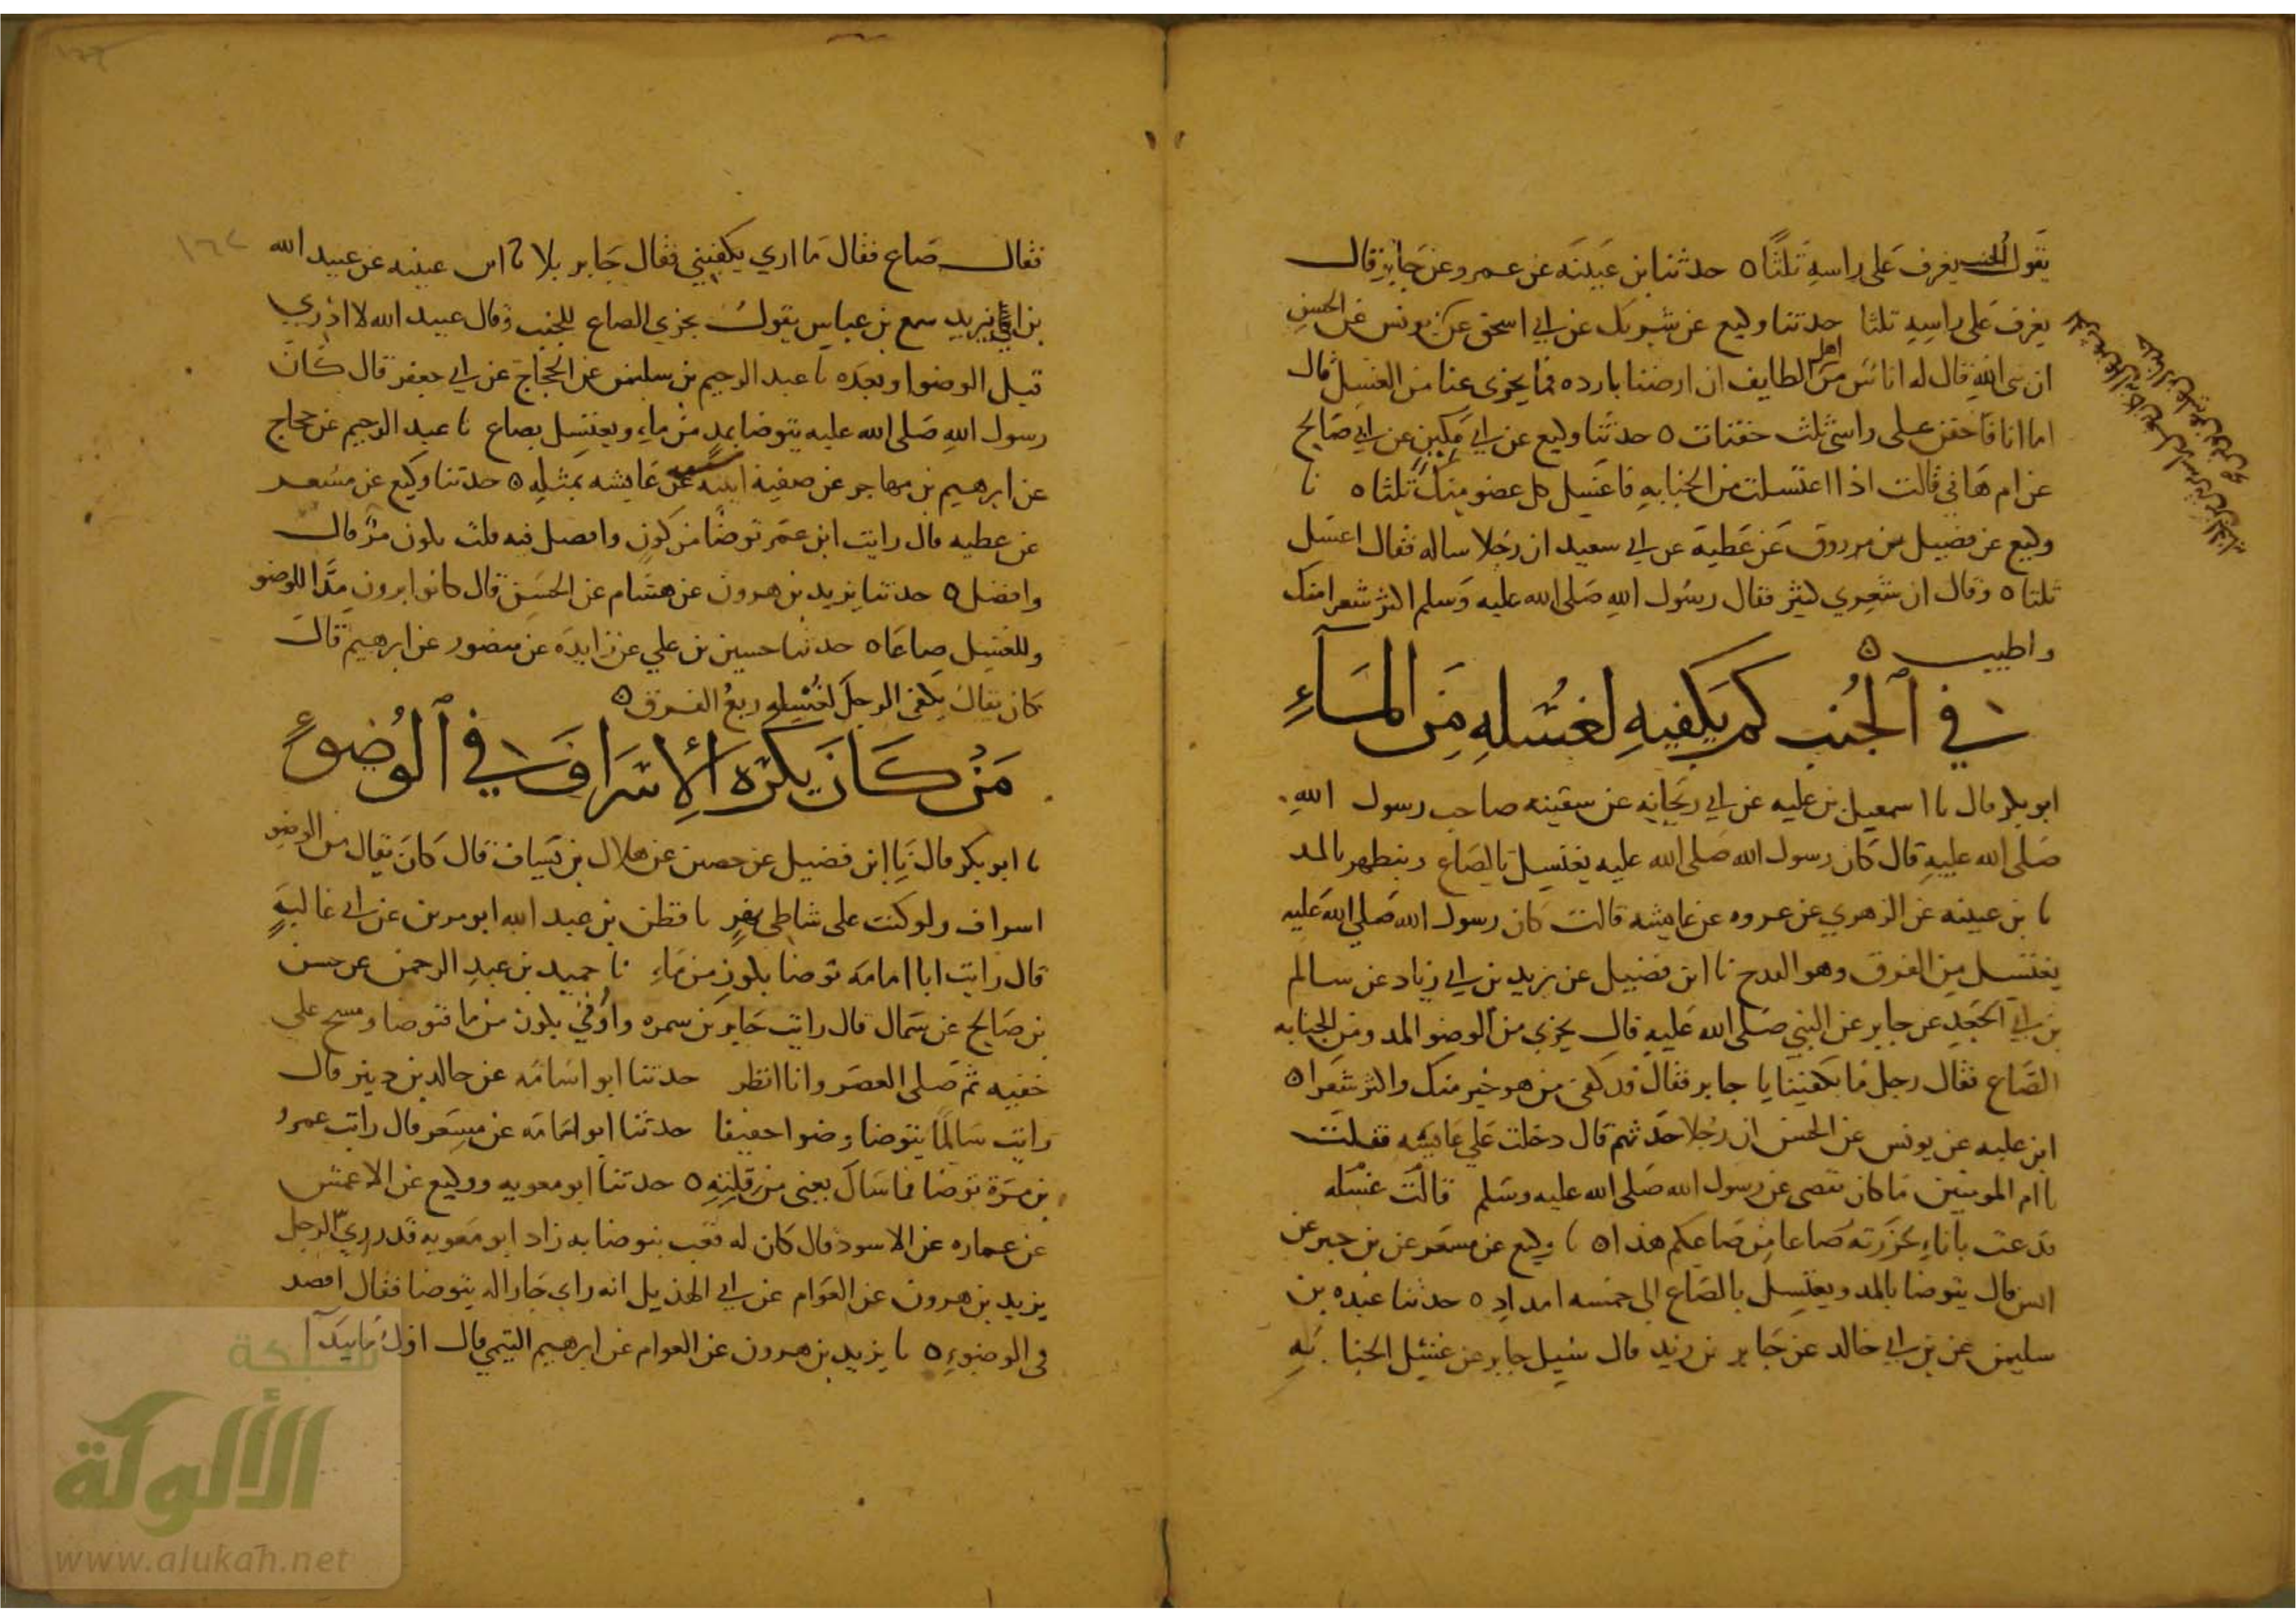 يقول الجنب يغرف على راسه ثلثا ٥ حدثنا ابن عيينه عن عمرو عن جابر قال
يغرف على راسه ثلثا حدثنا وكيع عن شريك عن ابي اسحق عن يونس عن الحسن
ان نبي الله قال له اناس من اهل الطايف ان ارضنا بارده فما يجزي عنا من الغسل فقال
اما انا فاحفن على راسي ثلث حفنات ٥ حدثنا وكيع عن ابي مكين عن ابي صالح
عن ام هاني قالت اذا اغتسلت من الجنابه فاغسل كل عضو منك ثلثا ٥ نا
وكيع عن فضيل بن مرزوق عن عطية عن ابي سعيد ان رجلا ساله فقال اغسل
ثلثا ٥ وقال ان شعري كثير فقال رسول الله صلى الله عليه وسلم اكثر شعرا منك
واطيب ٥
في الجنب كم يكفيه لغسله من الماء
ابو بكر قال نا اسمعيل بن عليه عن ابي ريحانه عن سفينه صاحب رسول الله
صلى الله عليه قال كان رسول الله صلى الله عليه يغتسل بالصاع ويتطهر بالمد
نا بن عيينه عن الزهري عن عروه عن عايشه قالت كان رسول الله صلى الله عليه
يغتسل من الفرق وهو القدح نا ابن فضيل عن يزيد بن ابي زياد عن سالم
بن ابي الجعد عن جابر عن النبي صلى الله عليه قال يجزي من الوضو المد ومن الجنابه
الصاع فقال رجل ما يكفينا يا جابر فقال قد كفى من هو خير منك واكثر شعرا ٥
ابن عليه عن يونس عن الحسن ان رجلا حدثهم قال دخلت على عايشه فقلت
يا ام المومنين ما كان يقضى عن رسول الله صلى الله عليه وسلم قالت غسله
فدعت باناء حزرته صاعا من صاعكم هذا ٥ نا وكيع عن مسعر عن بن جبر عن
انس قال يتوضا بالمد ويغتسل بالصاع الى خمسه امداد ٥ حدثنا عبده بن
سليمن عن بن ابي خالد عن جابر بن زيد قال سيل جابر عن غسل الجنابه
فقال صاع فقال ما ارى يكفيني فقال جابر بلا نا ابن عيينه عن عبيد الله
بن ابي يزيد سمع بن عباس يقول يجزي الصاع للجنب وقال عبيد الله لا ادري
قبل الوضوا وبعده نا عبد الرحيم بن سليمن عن الحجاج عن ابي جعفر قال كان
رسول الله صلى الله عليه يتوضا بمد من ماء ويغتسل بصاع نا عبد الرحيم عن حجاج
عن ابرهيم بن مهاجر عن صفيه ابنة عن عايشه بمثله ٥ حدثنا وكيع عن مسعر
عن عطيه قال رايت ابن عمر توضا من كوز وافضل فيه قلت يكون مدا قال
وافضل ٥ حدثنا يزيد بن هرون عن هشام عن الحسن قال كانوا يرون مدا للوضو
وللغسل صاعا ٥ حدثنا حسين بن علي عن زايده عن منصور عن ابرهيم قال
كان يقال يكفي الرجل لغسله ربع الفرق ٥
من كان يكره الإسراف في الوضوء
نا ابو بكر قال نا ابن فضيل عن حصين عن هلال بن يساف قال كان يقال من الوضو
اسراف ولو كنت على شاطى نهر نا قطن بن عبد الله ابو مرى عن ابي غالب
قال رايت ابا امامه توضا بكوز من ماء نا حميد بن عبد الرحمن عن حسن
بن صالح عن سماك قال رايت جابر بن سمره واوتي بكوز من ما فتوضا ومسح على
خفيه ثم صلى العصر وانا انظر حدثنا ابو اسامه عن خالد بن دينر قال
رايت سالما يتوضا وضوا خفيفا حدثنا ابو اسامه عن مسعر قال رايت عمرو
بن مرة توضا فما سال يعني من قلته ٥ حدثنا ابو معويه ووكيع عن الاعمش
عن عماره عن الاسود قال كان له قعب يتوضا به زاد ابو معويه قدر ري الرجل
يزيد بن هرون عن العوام عن ابي الهذيل انه راى جارا له يتوضا فقال اقصد
في الوضوء ٥ نا يزيد بن هرون عن العوام عن ابرهيم التيمي قال اول ما يبدا
شبكة
الألوكة
www.alukah.net